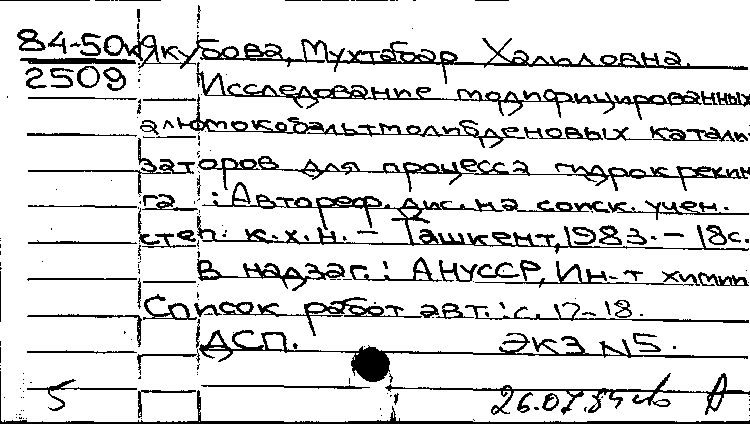 84-50к Якубова, Мухтабар Халиловна.
2509 Исследование модифицированных
алюмокобальтмолибденовых катали
заторов для процесса гидрокрекин
га : Автореф. дис. на соиск. учен.
степ. к.х.н. – Ташкент, 1983. – 18с.
В надзаг.: АНУССР, Ин-т химии
Список работ авт.: с. 17–18.
ДСП. ЭКЗ N5.
5 26.07.84